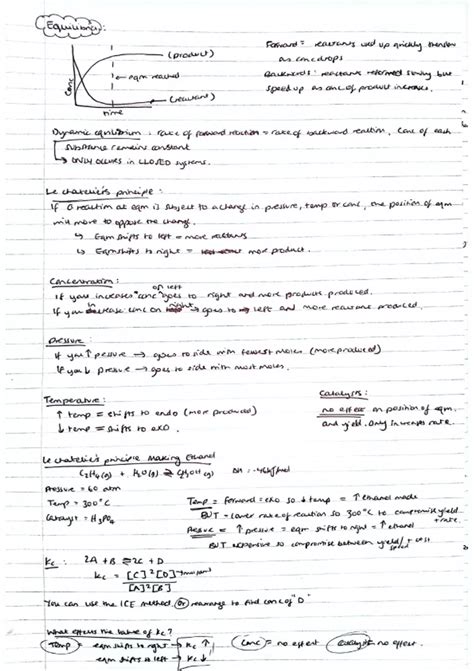 Equilibria:
Conc
(product)
eqm reached
(reactant)
time
Forward = reactants used up quickly then slow
as conc drops
Backwards: reactants reformed slowly but
speed up as conc of product increases.
Dynamic equilibrium: rate of forward reaction = rate of backward reaction, conc of each
substance remains constant
↳ ONLY occurs in CLOSED systems.
Le chatelier's principle:
If a reaction at eqm is subject to a change in pressure, temp or conc, the position of eqm
will move to oppose the change.
↳ Eqm shifts to left = more reactants
↳ Eqm shifts to right = more product.
Concentration:
If you increase conc on left goes to right and more products produced.
If you increase conc on right → goes to left and more reactants produced.
Pressure:
If you ↑ pressure → goes to side with fewest moles (more produced)
If you ↓ pressure → goes to side with most moles.
Temperature:
↑ temp = shifts to endo (more produced)
↓ temp = shifts to exo.
Catalysts:
no effect on position of eqm
and yield. Only increases rate.
Le chatelier's principle Making Ethanol
C₂H₄(g) + H₂O(g) ⇌ C₂H₅OH(g) ΔH = -46kJ/mol
Pressure = 60 atm
Temp = 300°C
Catalyst = H₃PO₄
Temp = forward = exo so ↓ temp = ↑ ethanol made
BUT = lower rate of reaction so 300°C to compromise yield
+ rate.
Pressure = ↑ pressure = eqm shifts to right = ↑ ethanol
BUT expensive so compromise between yield/ + cost
speed
Kc: 2A + B ⇌ 2C + D
Kc = [C]²[D]
[A]²[B]
You can use the ICE method, or rearrange to find conc of "D"
What effects the value of Kc?
Temp = eqm shifts to right → Kc ↑
eqm shifts to left → Kc ↓
Conc = no effect
Catalyst = no effect.